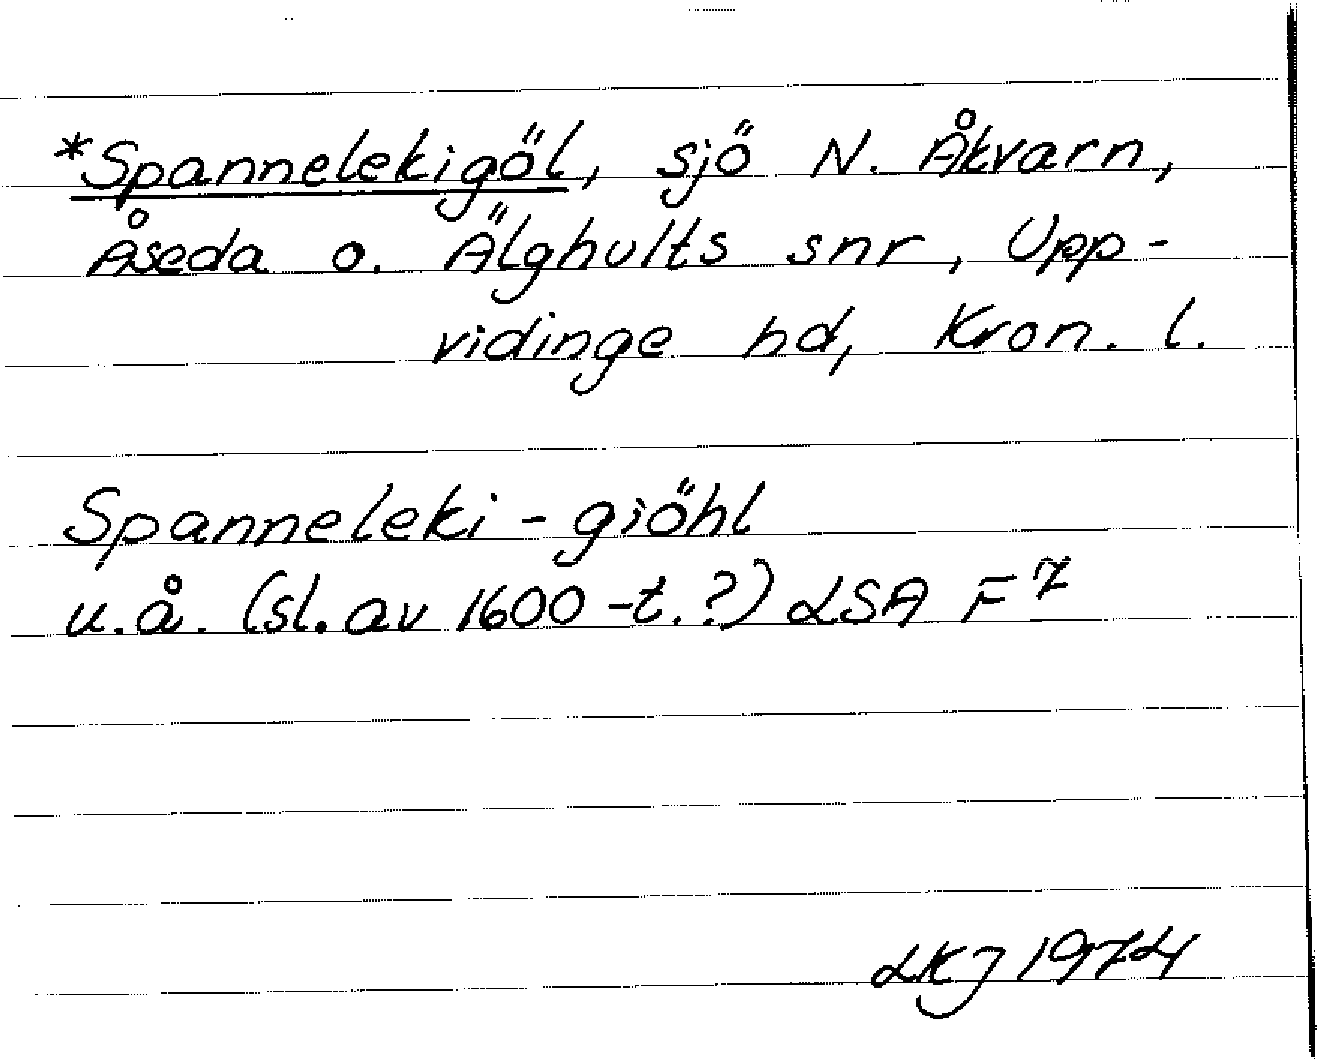 *Spannelekigöl, sjö N. Åkvarn,
Åseda o. Älghults snr, Upp-
vidinge hd, Kron. l.
Spanneleki - giöhl
u.å. (sl. av 1600-t.?) LSA F7
LKJ 1974